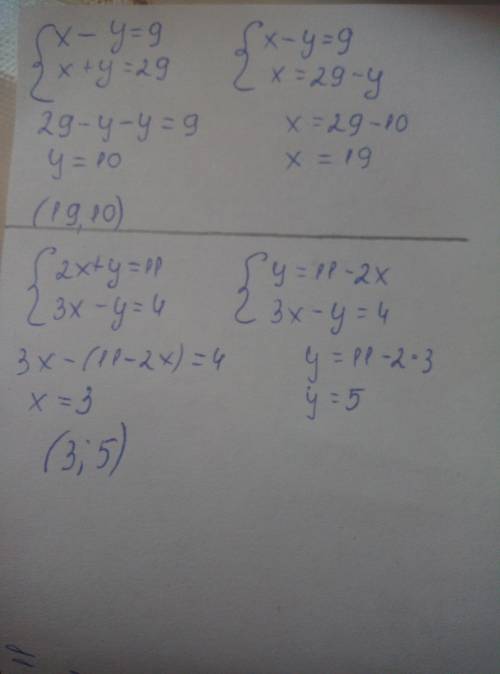 { x - y = 9    { x - y = 9
{ x + y = 29    { x = 29 - y
29 - y - y = 9    x = 29 - 10
y = 10    x = 19
(19, 10)
{ 2x + y = 11    { y = 11 - 2x
{ 3x - y = 4    { 3x - y = 4
3x - (11 - 2x) = 4    y = 11 - 2 · 3
x = 3    y = 5
(3; 5)